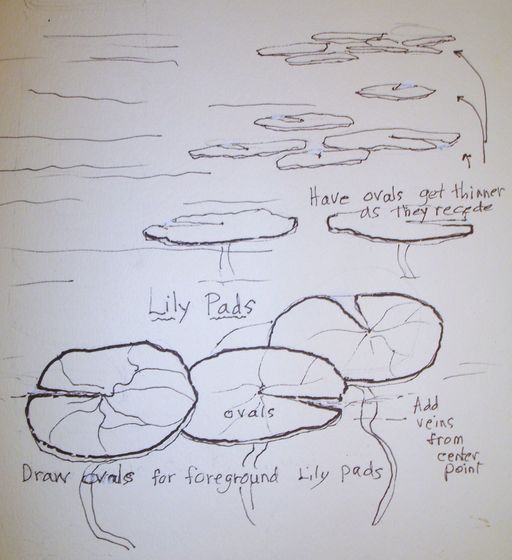 Have ovals get thinner
as they recede
Lily Pads
ovals
Add
veins
from
center
point
Draw ovals for foreground Lily pads